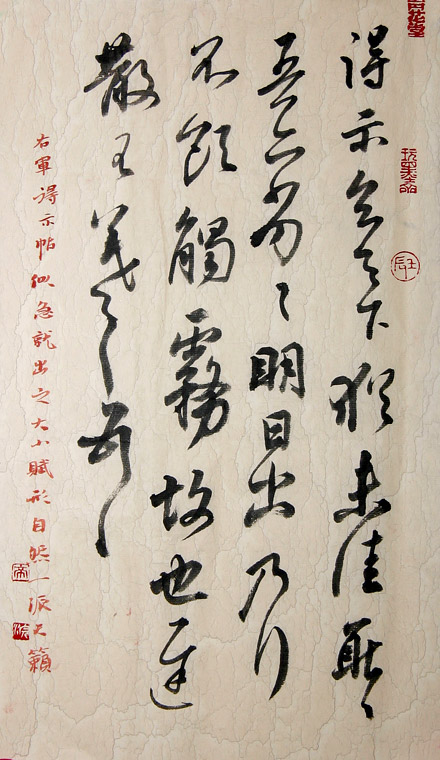 得示知足下猶未佳耿〻
吾亦劣〻明日出乃行
不欲觸霧故也遲
散王羲之頓首
右軍得示帖似急就出之大小賦形自然一派天籟